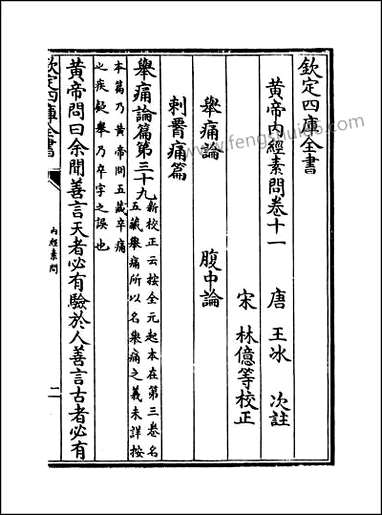 欽定四庫全書
黄帝内經素問卷十一
唐 王冰 次註
宋 林億等校正
舉痛論 腹中論
刺腰痛篇
舉痛論篇第三十九
新校正云按全元起本在第三卷名
五藏舉痛所以名舉痛之義未詳按
本篇乃黄帝問五藏卒痛
之疾疑舉乃卒字之誤也
黄帝問曰余聞善言天者必有驗於人善言古者必有
欽定四庫全書
内經素問
www.fengshui86.com